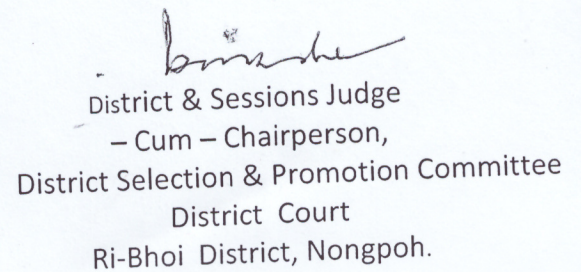 District & Sessions Judge
– Cum – Chairperson,
District Selection & Promotion Committee
District Court
Ri-Bhoi District, Nongpoh.